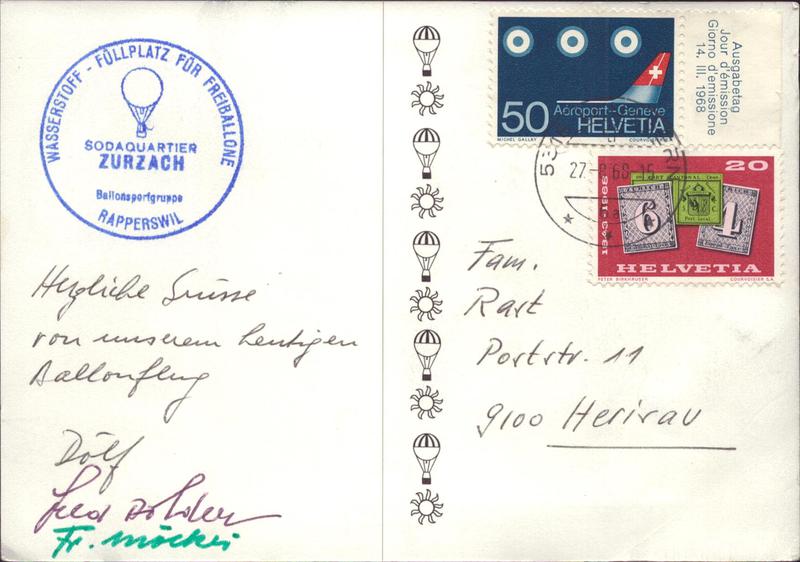 WASSERSTOFF - FÜLLPLATZ FÜR FREIBALLONE
SODAQUARTIER
ZURZACH
Ballonsportgruppe
RAPPERSWIL
Herzliche Grüsse
von unserem heutigen
Ballonflug
Dölf
Fr.
50
Aéroport-Genève
HELVETIA
MICHEL GALLAY
COURVOISIER
Ausgabetag
Jour d'émission
Giorno d'emissione
14. III. 1968
27.
68
20
1843-1968
ZURICH
6
PORT CANTONAL
Port Local
ZURICH
4
HELVETIA
PETER BIRKHÄUSER
COURVOISIER S.A.
Fam.
Rast
Poststr. 11
9100 Herisau